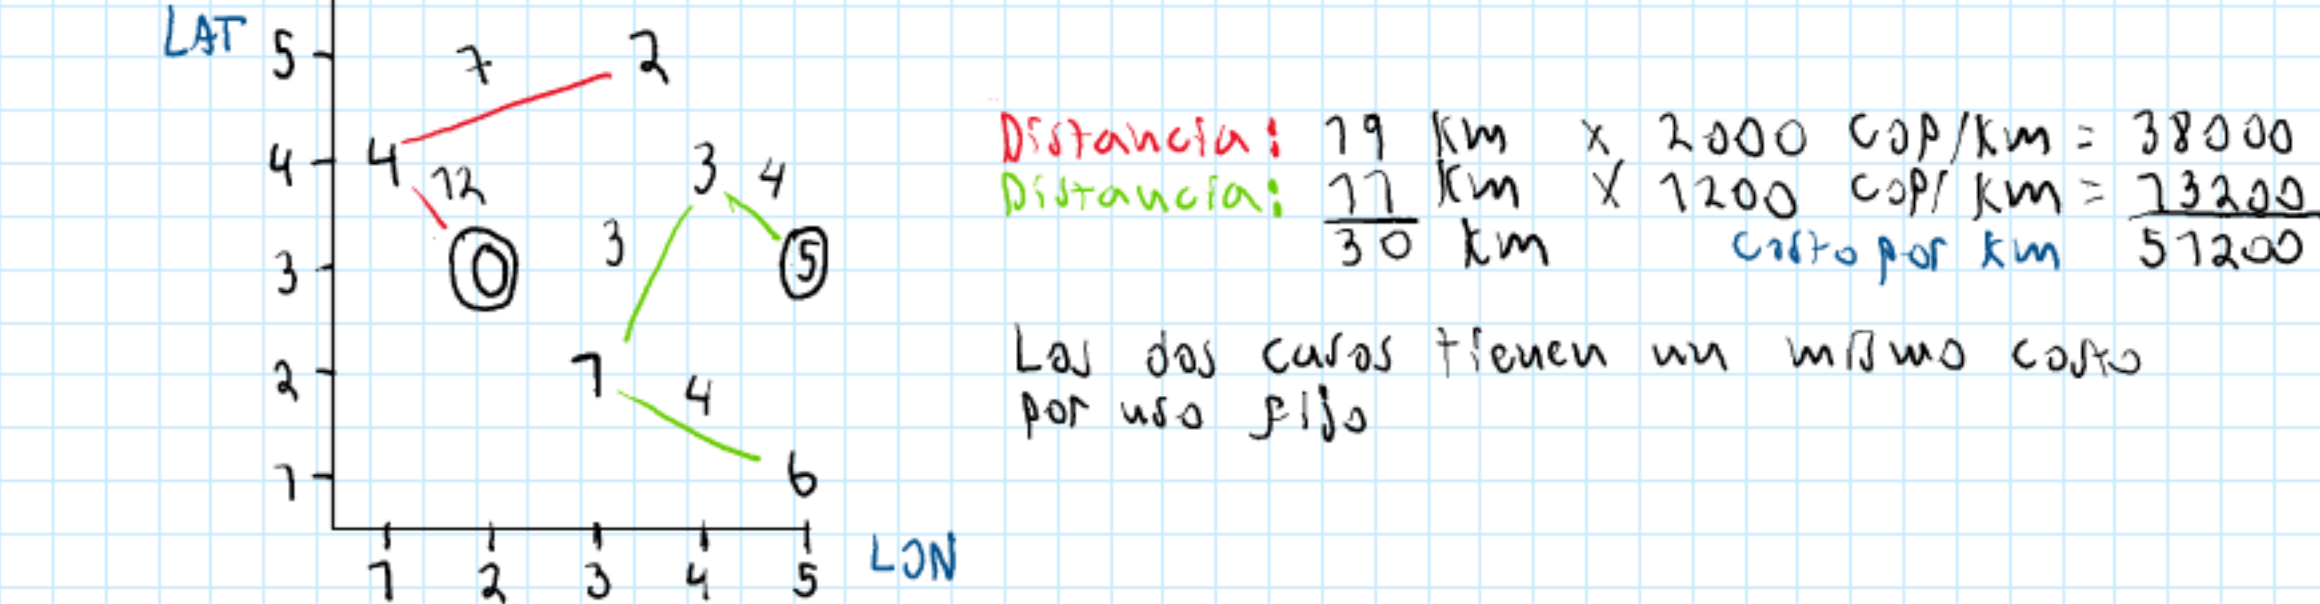 LAT
5
7
2
4
4
12
3
4
3
0
3
5
2
1
4
1
6
1
2
3
4
5
LON
Distancia: 19 km x 2000 COP/km = 38000
Distancia: 11 km x 1200 COP/km = 13200
30 km Costo por km 51200
Los dos casos tienen un mismo costo
por uso fijo